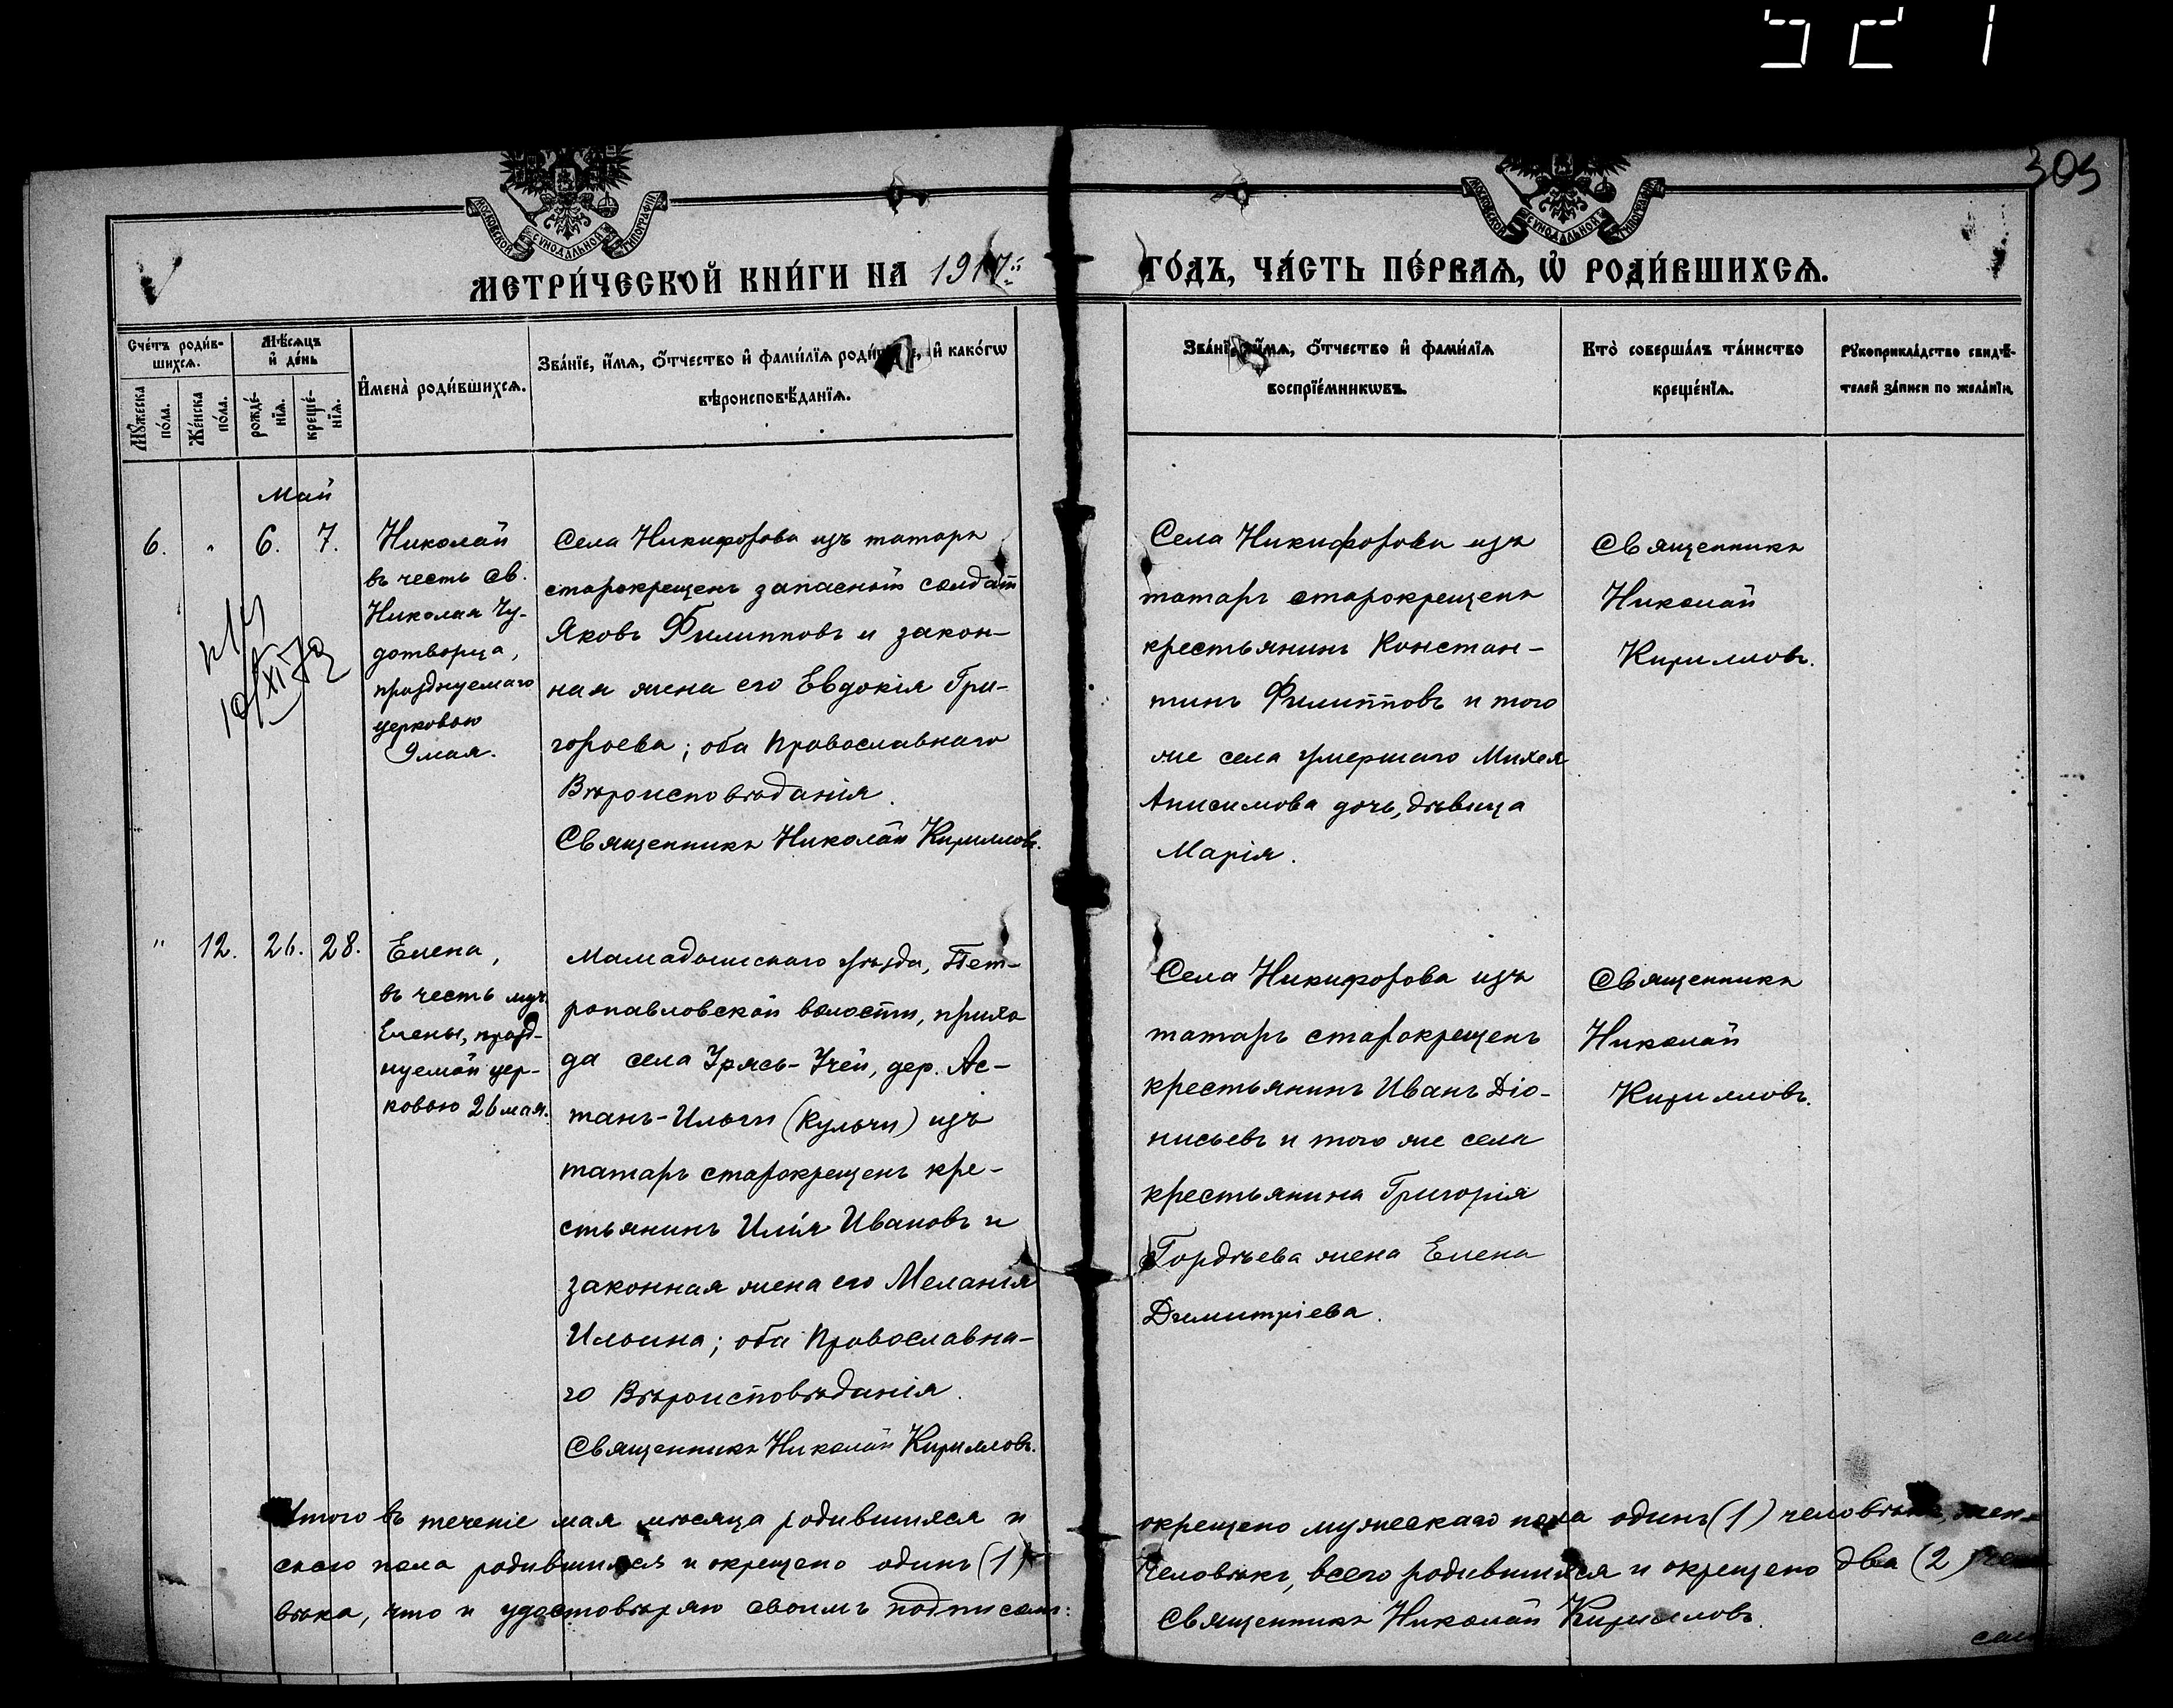 521
305
МОСКОВСКОЙ СУНОДАЛЬНОЙ ТИПОГРАФІИ
МОСКОВСКОЙ СУНОДАЛЬНОЙ ТИПОГРАФІИ
МЕТРИ́ЧЕСКОЙ КНИ́ГИ НА 1917й
ГО́ДЪ, ЧА́СТЬ ПЕ́РВАѦ, Ѡ҆ РОДИ́ВШИХСѦ.
Сче́тъ роди́в-
шихсѧ.
Мѣ́сѧцъ
и҆ де́нь
Мꙋ́жеска
по́ла.
Же́нска
по́ла.
рожде́-
нїѧ.
креще́-
нїѧ.
И҆мена̀ роди́вшихсѧ.
Зва́нїе, и҆́мѧ, ѻ҆́тчество и҆ фами́лїѧ и҆ како́гѡ
вѣроисповѣ́данїѧ.
Зва́нїе, и҆́мѧ, ѻ҆́тчество и҆ фами́лїѧ
воспрїе́мникѡвъ.
Кто̀ соверша́лъ та́инство
креще́нїѧ.
Рꙋкоприкла́дство свидѣ́-
телей за́писи по жела́нїю.
Май
6. „ 6. 7.
Николай
въ честь св.
Николая Чу-
дотворца,
празднуемаго
церковью
9 мая.
Села Никифорова изъ татаръ
старокрещенъ запасный солдатъ
Яковъ Филипповъ и закон-
ная жена его Евдокія Гри-
горьева; оба Православнаго
Вѣроисповѣданія.
Священникъ Николай Кирилловъ.
Села Никифорова изъ
татаръ старокрещенъ
крестьянинъ Констан-
тинъ Филипповъ и того
же села умершаго Михея
Анисимова дочь, дѣвица
Марія.
Священникъ
Николай
Кирилловъ.
" 12. 26. 28.
Елена,
въ честь муч.
Елены, празд-
нуемой цер-
ковью 26 мая.
Мамадышскаго уѣзда, Пет-
ропавловской волости, прихо
да села Урясь-Учей, дер. Ас-
танъ-Ильги (Кульчи) изъ
татаръ старокрещенъ кре-
стьянинъ Илія Ивановъ и
законная жена его Меланія
Ильина; оба Православна-
го Вѣроисповѣданія.
Священникъ Николай Кирилловъ.
Села Никифорова изъ
татаръ старокрещенъ
крестьянинъ Иванъ Діо-
нисьевъ и того же села
крестьянина Григорія
Гордѣева жена Елена
Димитріева.
Священникъ
Николай
Кирилловъ.
Итого въ теченіе мая мѣсяца родившихся и окрещено мужескаго пола одинъ (1) человѣкъ, жен-
скаго пола родившихся и окрещено одинъ (1) человѣкъ, всего родившихся и окрещено два (2) чело
вѣка, что и удостовѣряю своимъ подписомъ: Священникъ Николай Кирилловъ.